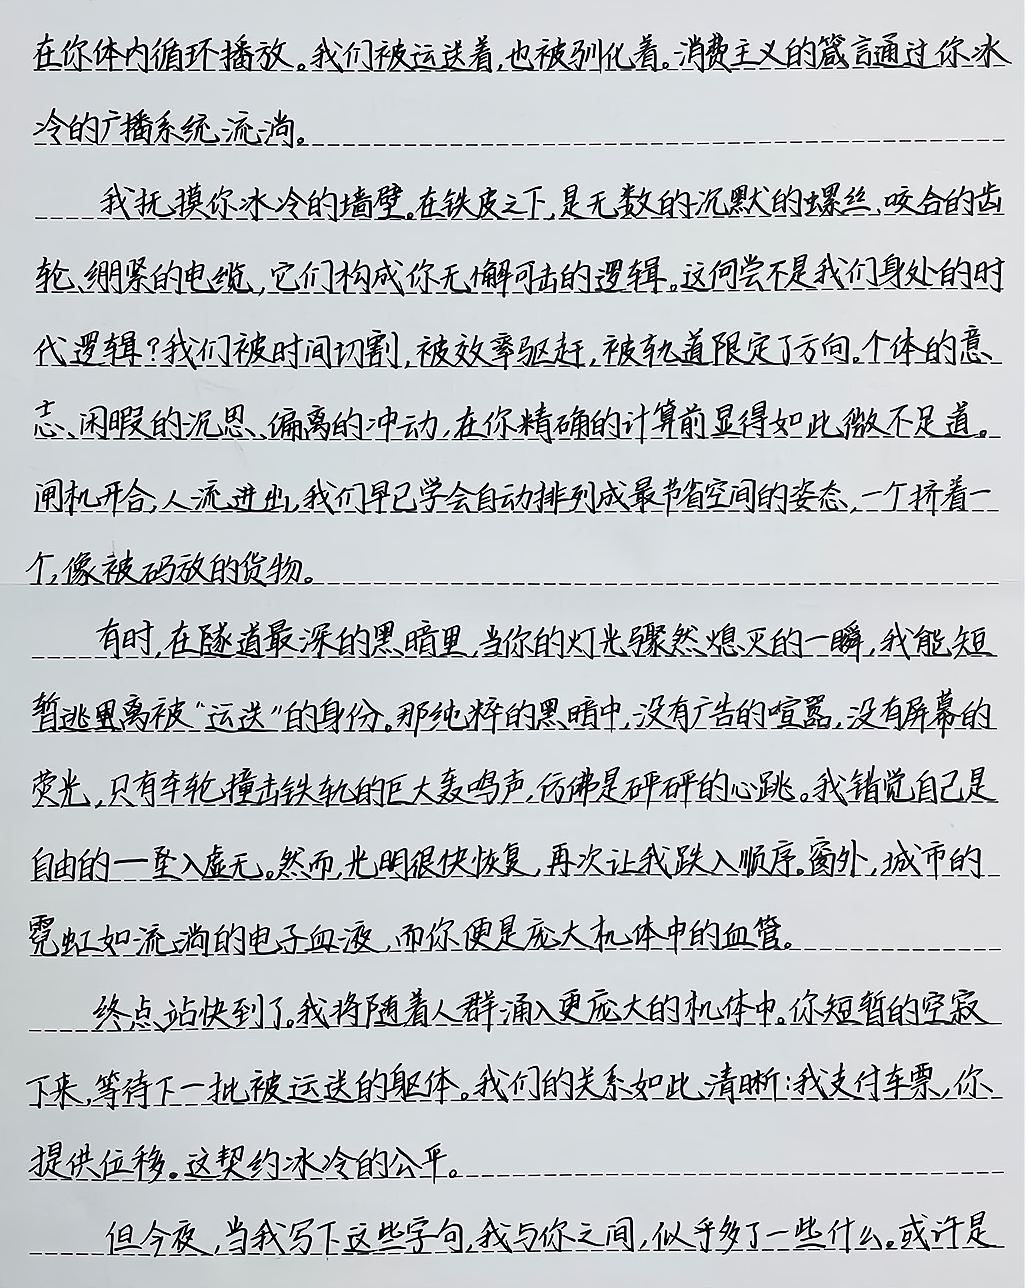 在你体内循环播放。我们被运送着,也被驯化着。消费主义的箴言通过你冰
冷的广播系统流淌。
我抚摸你冰冷的墙壁。在铁皮之下,是无数的沉默的螺丝、咬合的齿
轮、绷紧的电缆,它们构成你无懈可击的逻辑。这何尝不是我们身处的时
代逻辑?我们被时间切割,被效率驱赶,被轨道限定了方向。个体的意
志、闲暇的沉思、偏离的冲动,在你精确的计算前显得如此微不足道。
闸机开合,人流进出,我们早已学会自动排列成最节省空间的姿态,一个挤着一
个,像被码放的货物。
有时,在隧道最深的黑暗里,当你的灯光骤然熄灭的一瞬,我能短
暂逃离被“运送”的身份。那纯粹的黑暗中,没有广告的喧嚣,没有屏幕的
荧光,只有车轮撞击铁轨的巨大轰鸣声,仿佛是砰砰的心跳。我错觉自己是
自由的——坠入虚无。然而,光明很快恢复,再次让我跌入顺序。窗外,城市的
霓虹如流淌的电子血液,而你便是庞大机体中的血管。
终点站快到了。我将随着人群涌入更庞大的机体中。你短暂的空寂
下来,等待下一批被运送的躯体。我们的关系如此清晰:我支付车票,你
提供位移。这契约冰冷的公平。
但今夜,当我写下这些字句,我与你之间,似乎多了一些什么。或许是